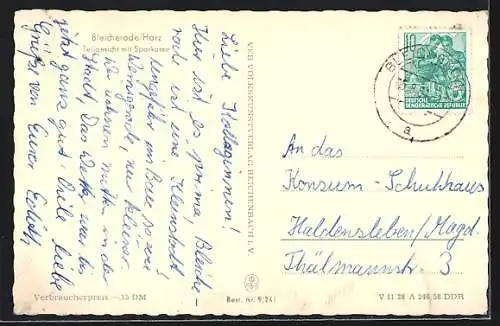 Bleicherode/Harz
Teilansicht mit Sparkasse
Liebe Kolleginnen!
Hier ist es prima, Bleiche-
rode ist eine Kleinstadt
ungefähr im Bau so wie
Wernigerode, nur kleiner.
Wir wohnen mitten in der
Stadt. Das Wetter war bis
jetzt ganz gut. Viele liebe
Grüße von Eurer Edith
VEB VOLKSKUNSTVERLAG REICHENBACH i. V.
Verbraucherpreis –.15 DM
Best. nr. 9/241
10
DEUTSCHE
DEMOKRATISCHE REPUBLIK
a
An das
Konsum-Schuhhaus
Haldensleben/Magd.
Thälmannstr. 3
V 11 28 A 246 58 DDR